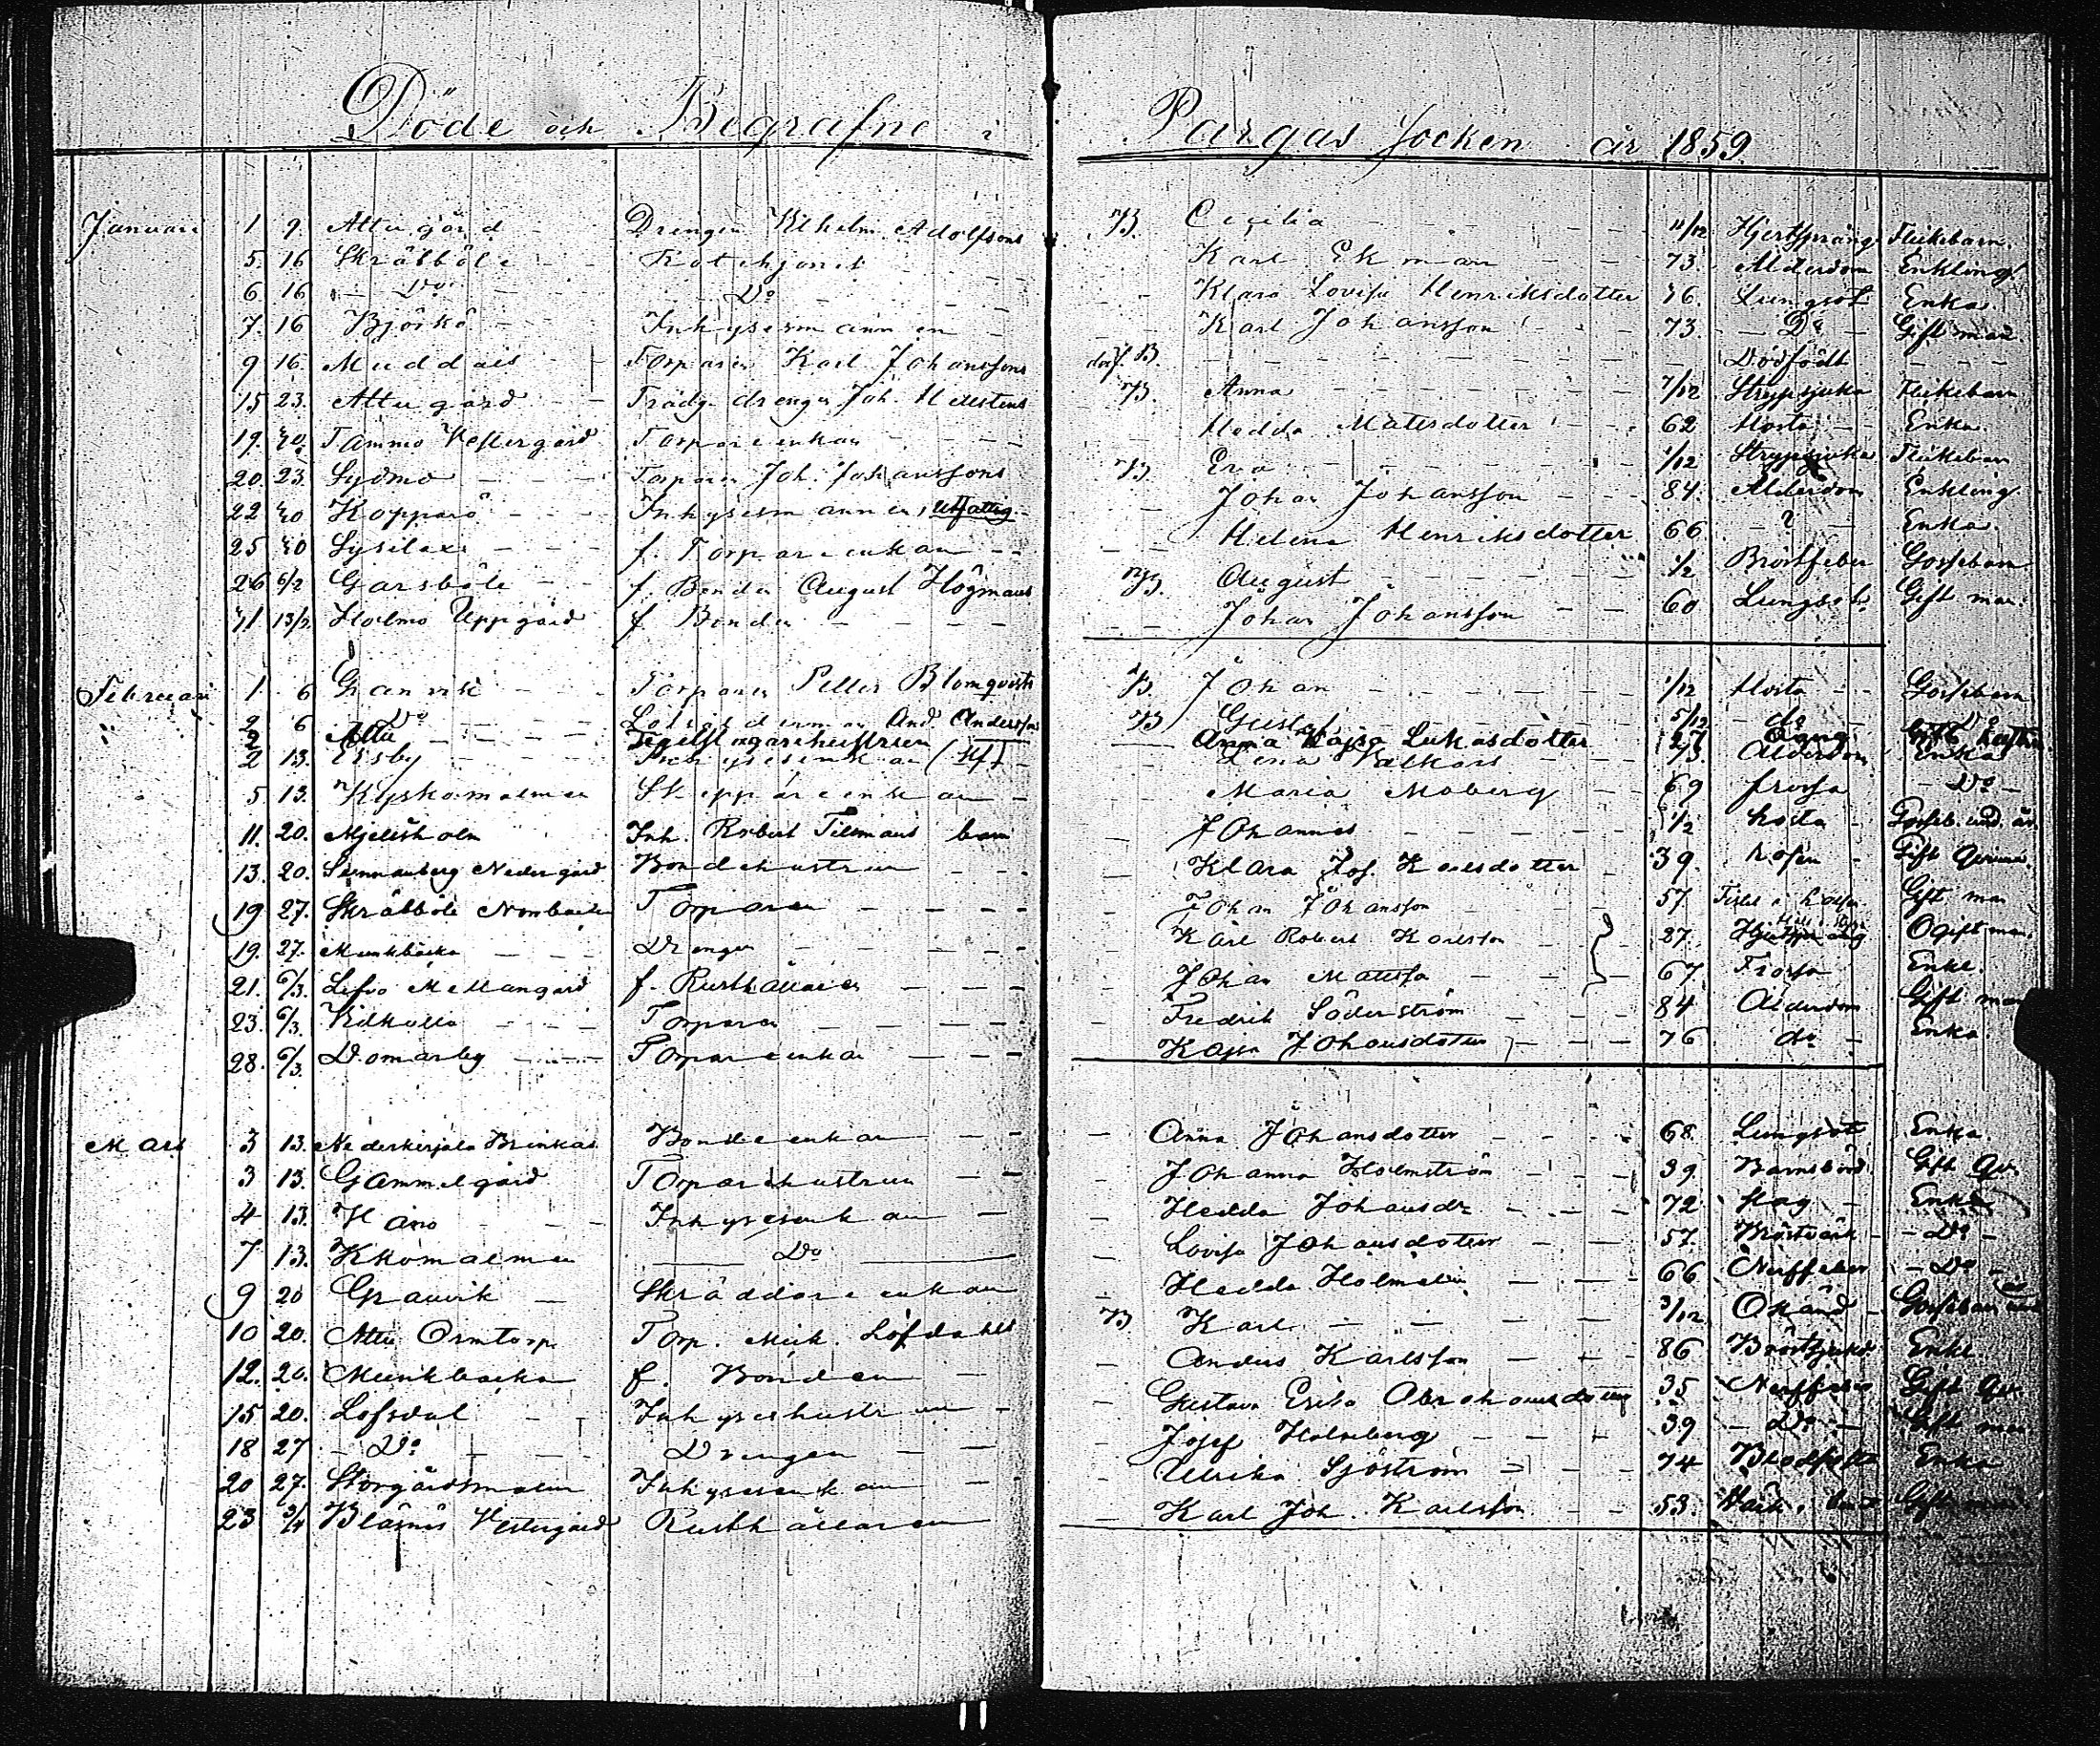 Döde och Begrafne i Pargas Socken år 1859
Januari 1 9. Attu gård Drängen Vilhelm Adolfsons B. Cecilia 11/12 Hjertsprång Flickebarn.
5. 16 Skråbböle Rotehjonet Karl Ekman 73. Ålderdom Enkling
6 16 Do Do Klara Lovisa Henriksdotter 76. Lungsot Enka
7. 16 Björkö Inhysesmannen Karl Johansson 73. Do Gift man
9 16 Muddais Torparen Karl Johanssons B. Dödfödt
15 23. Attu gård Trädg. drengen Joh. Hellstens B. Anna 7/12 Strypsjuka Flickebarn
19. Tammo Vestergård Torpareenkan Hedda Matsdotter 62 Hosta Enka
20. 23. Sydmo Torparen Joh. Johanssons B. Eva 1/12 Strypsjuka Flickebarn
22 Kopparö Inhysesmannen, utfattig Johan Johansson 84. Ålderdom Enkling
25 Sysilax f. Torpareenkan Helena Henriksdotter 66 ? Enka
26 6/2 Garsböle f. Bonden August Högmans B. August 1/2 Bröstfeber Gossebarn
13/2 Holmo Uppgård f. Bonden Johan Johansson 60 Lungsot Gift man
Februari 1. 6 Granvik Torparen Petter Blomqvists B. Johan 1/12 Hosta Gossebarn
2 6 Do And. Anderssons B Gustaf 5/12 do Do
2 Attu Anna Kajsa Lukasdotter 27
2 13. Ersby Inhysesenkan Lena 73 Ålderdom Enka
5 13. Kyrkomalmen Skeppareenkan Maria Moberg 69 frossa Do
11. 20. Mjelisholm Inh. Robert Tillmans barn Johannes 1/2 hosta
13. 20. Sunnanberg Nedergård Bondehustrun Klara Jos. Karlsdotter 39. rosen Gift Qvinna
19 27. Skråbböle Norrbacka Torparen Johan Johansson 57. Gift man
19. 27. Munkbacka Drengen Karl Robert Karlsson 27 Ogift man.
21. 6/3. Lofsö Mellangård f. Rusthållaren Johan Matsson 67. Frossa Enkl.
23. 6/3. Vidkulla Torparen Fredrik Söderström 84 Ålderdom Gift man
28. 6/3. Domarby Torpareenkan Kajsa Johansdotter 76 do Enka
Mars 3 13. Nederkirjala Brinkas Bondeenkan Anna Johansdotter 68. Lungsot Enka
3 13. Gammelgård Torparehustrun Johanna Holmström 39. Barnsbörd Gift Qv.
4 13. Inhysesenkan Hedda Johansdr 72. Håg Enka
7 13. Kkomalmen Do Lovisa Johansdotter 57. Bröstvärk Do
9 20 Granvik Skräddareenkan Hedda Holmelin 66 Nerffeber Do
10 20. Attu Ormtorp Torp. Mick. Löfdahls B Karl 3/12 Okänd Gossebarn
12. 20. Munkbacka f. Bonden Anders Karlsson 86 Bröstsjukd Enkl.
15 20. Lofsdal Inhyseshustrun Gustava Erika Abrahamsdotter 35 Nerffeber Gift Qv.
18 27 Do Drengen Josef Holmberg 39 Do Gift man
20 27. Storgårdsmalm Inhysesenkan Ulrika Sjöström 74 Enka
23 3/4 Blåsnäs Vestergård Rusthållaren Karl Joh. Karlsson 53. Gift man